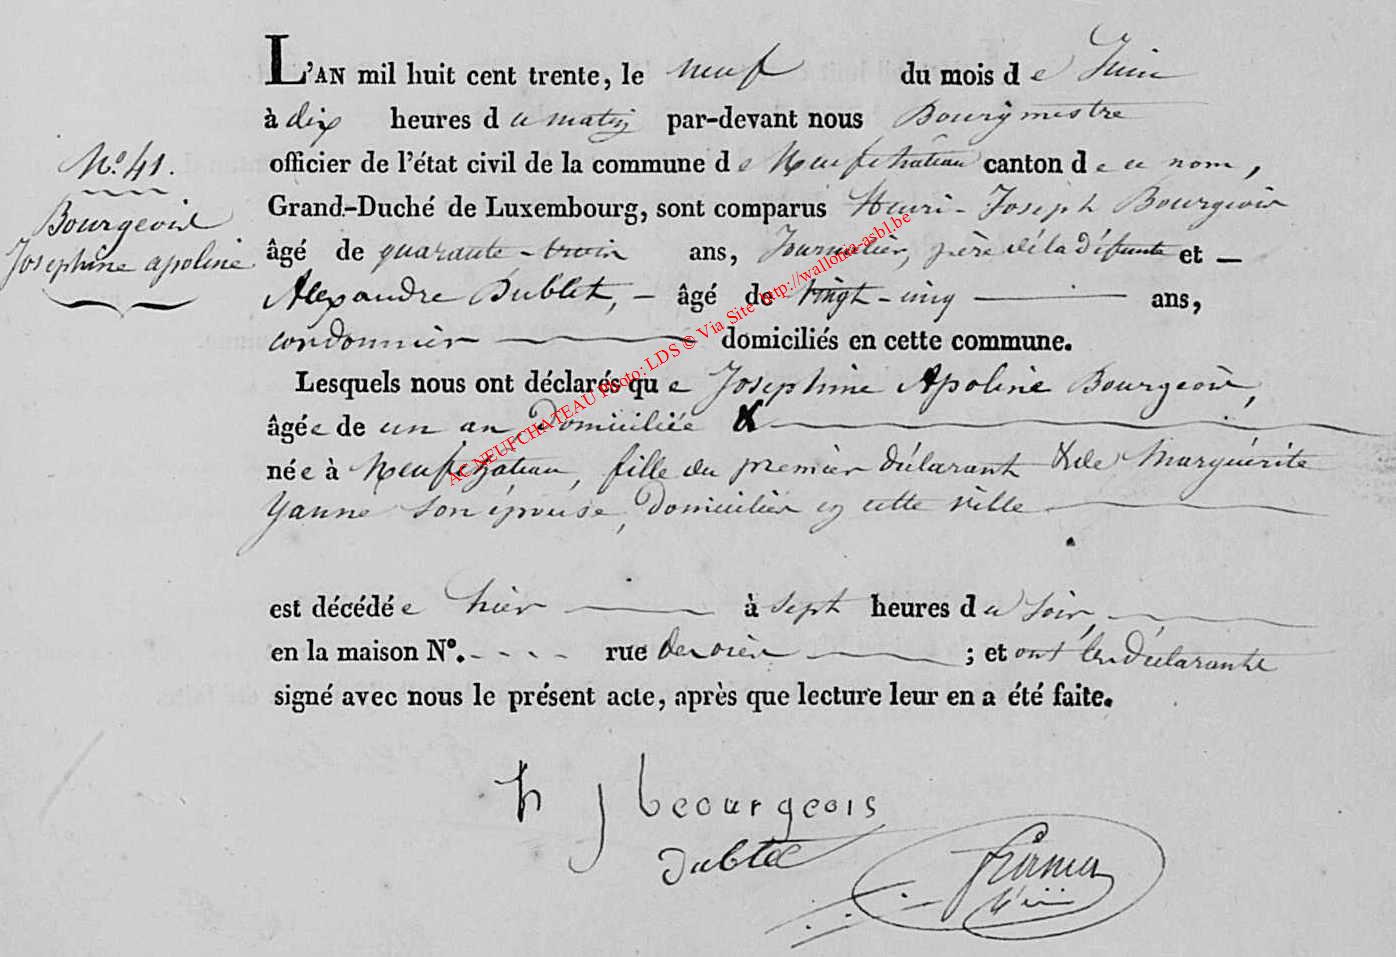 L'AN mil huit cent trente, le neuf du mois de Juin
à dix heures du matin par-devant nous Bourgmestre
officier de l'état civil de la commune de Neufchateau canton de ce nom,
Grand-Duché de Luxembourg, sont comparus Henri-Joseph Bourgeois
âgé de quarante-trois ans, Journalier, père de la défunte et
Alexandre Dublet, âgé de vingt-cinq ans,
cordonnier domiciliés en cette commune.
Lesquels nous ont déclarés que Josephine Apoline Bourgeois,
âgée de un an, Domiciliée
née à Neufchateau, fille du premier déclarant & de Marguérite
Yanne son épouse, Domiciliés en cette ville
est décédée hier à sept heures du soir,
en la maison N°. - - - - rue derrière ; et ont les déclarants
signé avec nous le présent acte, après que lecture leur en a été faite.
N°. 41.
Bourgeois
Josephine apoline
h j beourgeois
dublet
AC NEUFCHATEAU Photo: LDS © Via Site http://wallonia-asbl.be